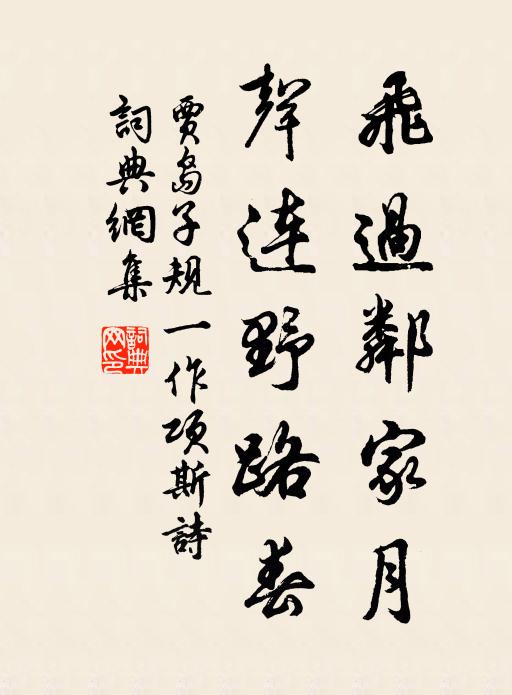 飛過鄰家月
聲連野路春
賈島子規一作項斯詩
詞典網集
詞典網印